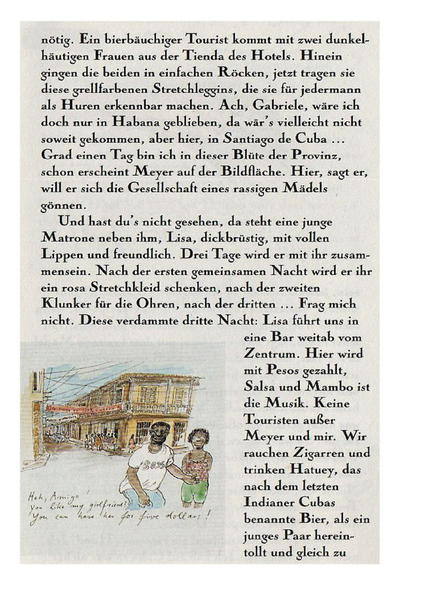 nötig. Ein bierbäuchiger Tourist kommt mit zwei dunkel-
häutigen Frauen aus der Tienda des Hotels. Hinein
gingen die beiden in einfachen Röcken, jetzt tragen sie
diese grellfarbenen Stretchleggins, die sie für jedermann
als Huren erkennbar machen. Ach, Gabriele, wäre ich
doch nur in Habana geblieben, da wär's vielleicht nicht
soweit gekommen, aber hier, in Santiago de Cuba ...
Grad einen Tag bin ich in dieser Blüte der Provinz,
schon erscheint Meyer auf der Bildfläche. Hier, sagt er,
will er sich die Gesellschaft eines rassigen Mädels
gönnen.
Und hast du's nicht gesehen, da steht eine junge
Matrone neben ihm, Lisa, dickbrüstig, mit vollen
Lippen und freundlich. Drei Tage wird er mit ihr zusam-
mensein. Nach der ersten gemeinsamen Nacht wird er ihr
ein rosa Stretchkleid schenken, nach der zweiten
Klunker für die Ohren, nach der dritten ... Frag mich
nicht. Diese verdammte dritte Nacht: Lisa führt uns in
eine Bar weitab vom
Zentrum. Hier wird
mit Pesos gezahlt,
Salsa und Mambo ist
die Musik. Keine
Touristen außer
Meyer und mir. Wir
rauchen Zigarren und
trinken Hatuey, das
nach dem letzten
Indianer Cubas
benannte Bier, als ein
junges Paar herein-
tollt und gleich zu
Heh, Amigo!
You like my girlfriend?
You can have her for five dollars!